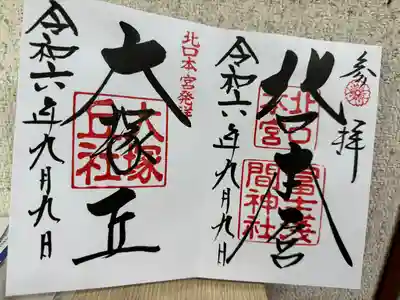 参拝
北口本宮
北口本宮
冨士浅間神社
令和六年九月九日
北口本宮発祥
大塚丘
大塚丘社
令和六年九月九日